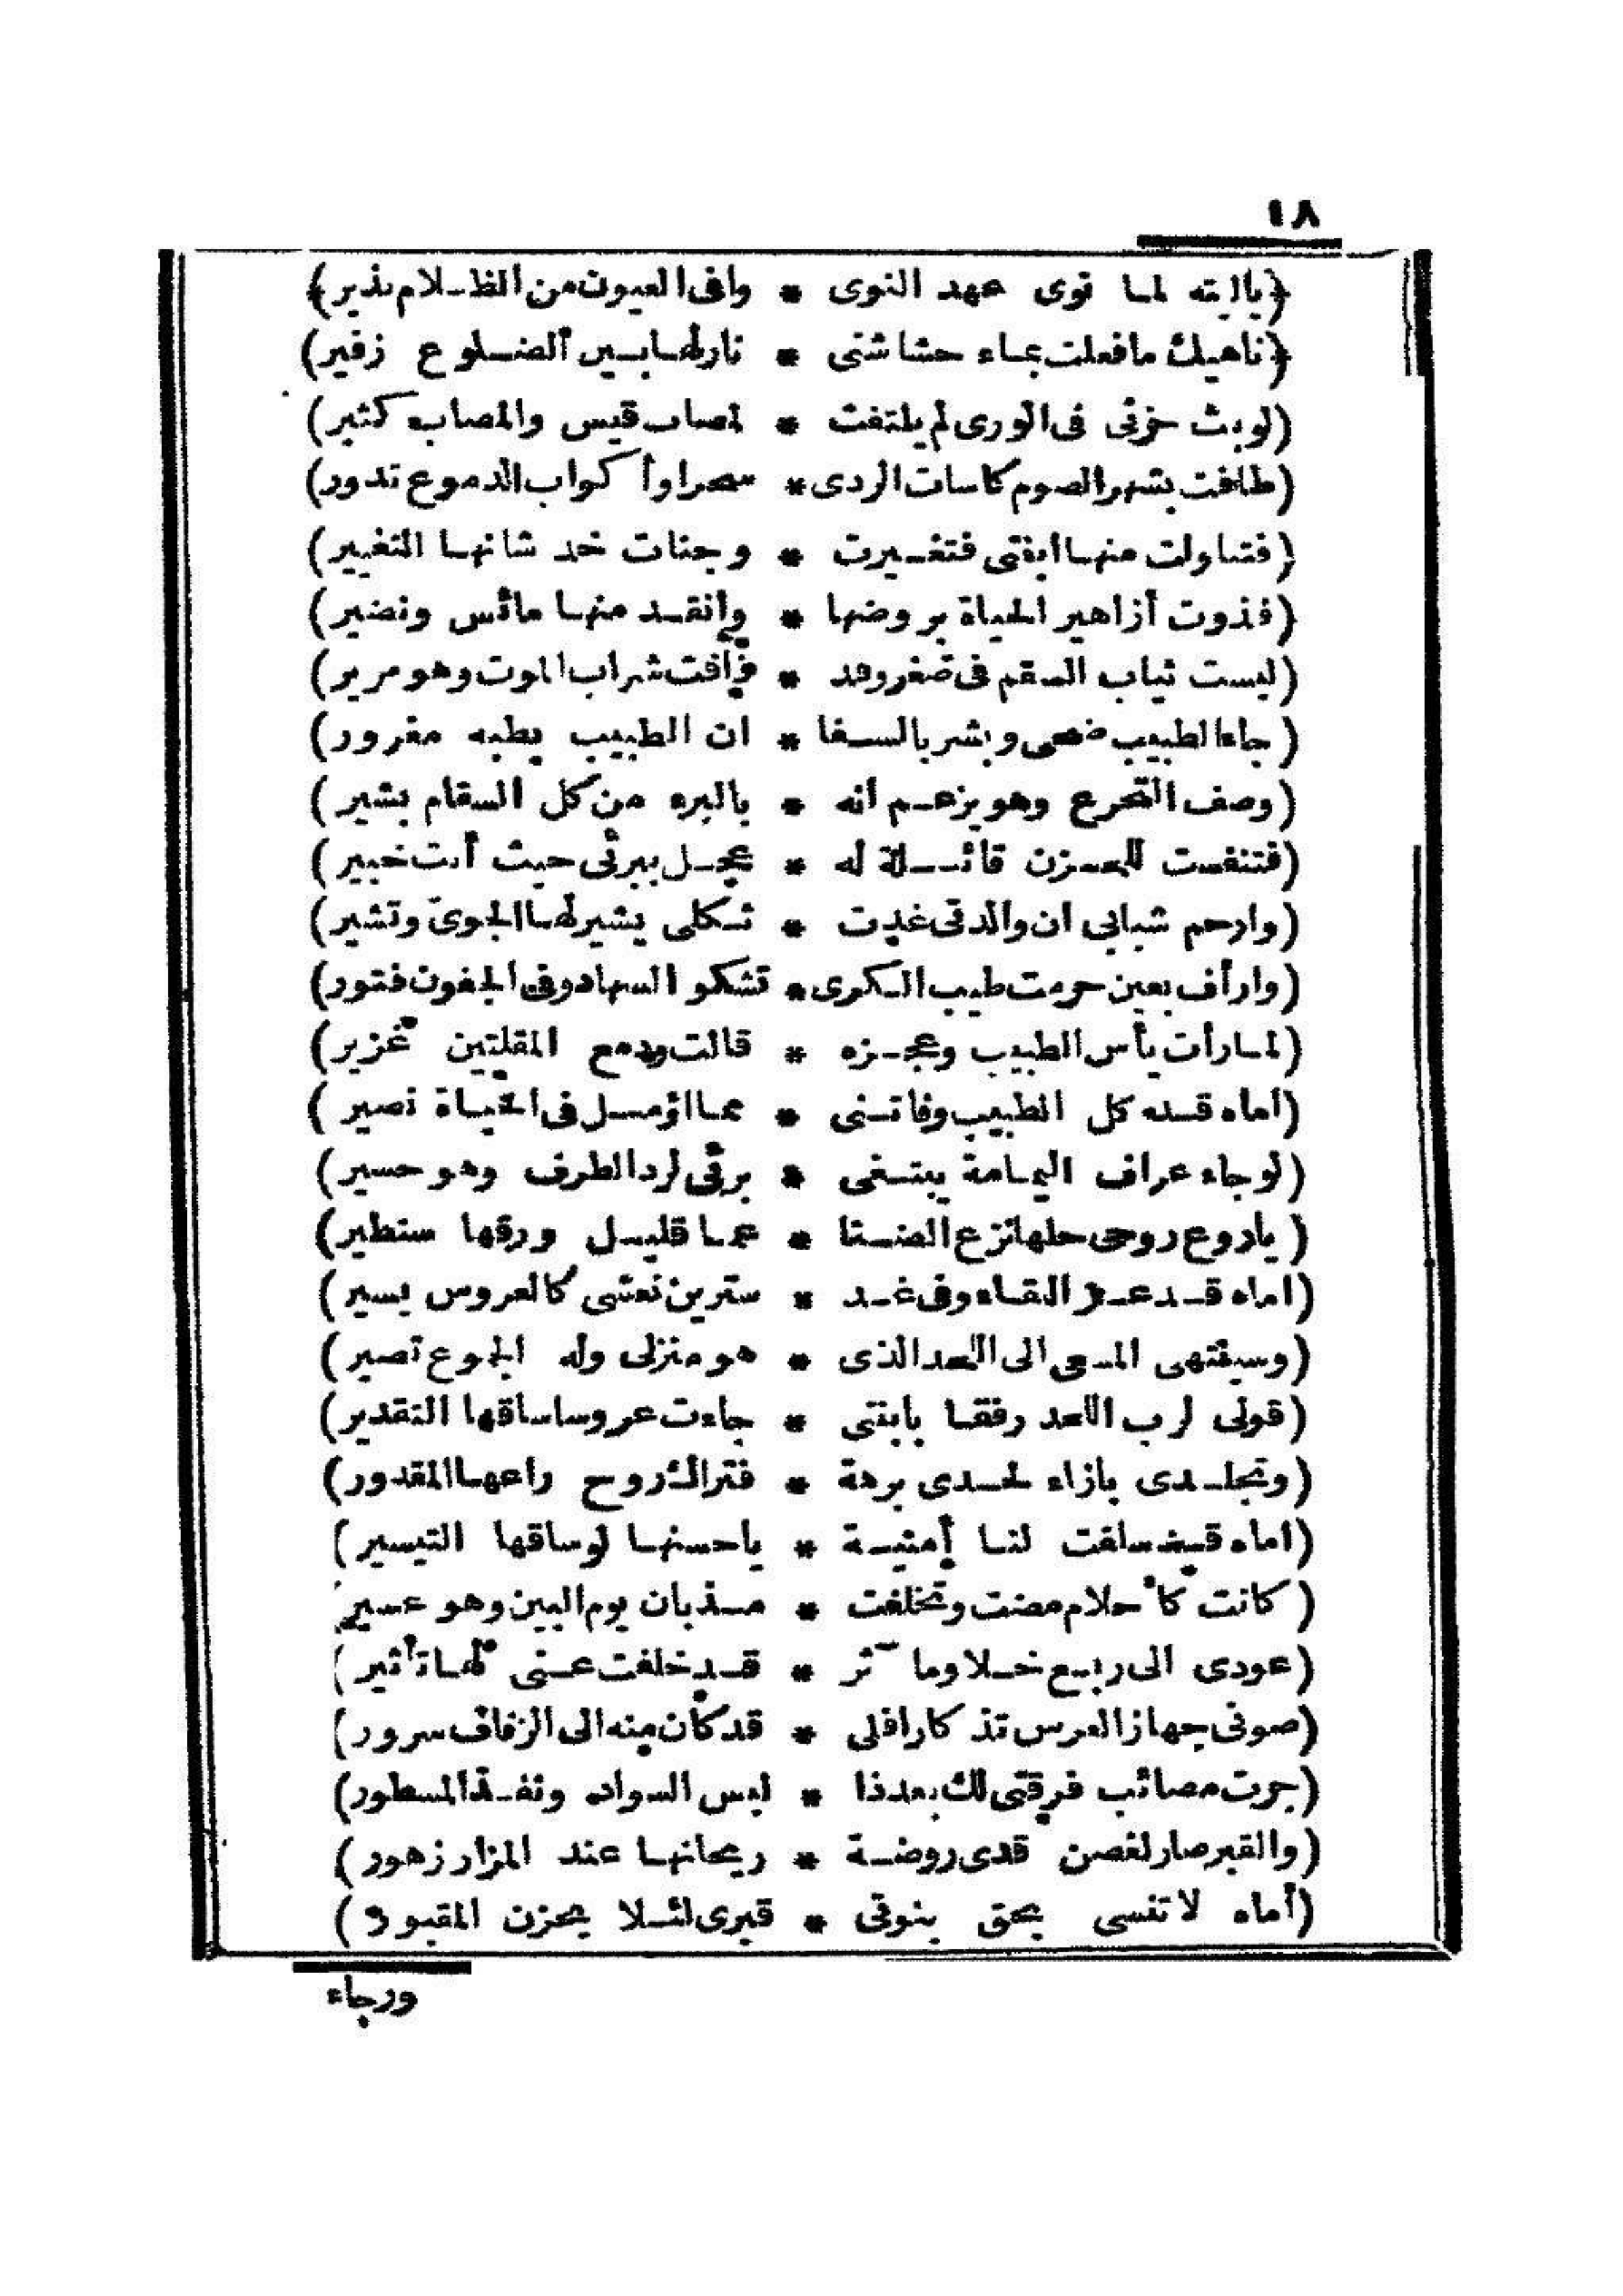 ١٨
﴿ياليته لما نوى عهد النوى * وافى العيون من الظـلام نذير﴾
﴿ناهيك مافعلت بماء حشاشتى * نارلهـا بـين الضـلوع زفير)
(لوبث حزنى فى الورى لم يلتفت * لمصاب قيس والمصاب كثير)
(طافت بشهر الصوم كاسات الردى * سحرا وأكواب الدموع تدور)
(فتناولت منهـا ابنتى فتغـيرت * وجنات خد شانهـا التغيير)
(فذوت أزاهير الحياة بروضها * وانقـد منهـا مائس ونضير)
(لبست ثياب السقم فى صغر وقد * ذاقت شراب الموت وهو مرير)
(جاء الطبيب ضحى وبشر بالشـفا * ان الطبيب بطبه مغرور)
(وصف التجرع وهو يزعـم أنه * بالبرء من كل السقام بشير)
(فتنفست للحـزن قائـلة له * عجـل ببرئى حيث أنت خبير)
(وارحم شبابى ان والدتى غدت * ثـكلى يشير لهـا الجوى وتشير)
(وارأف بعين حرمت طيب الـكرى * تشكو السهاد وفى الجفون فتور)
(لمـا رأت يأس الطبيب وعجـزه * قالت ودمع المقلتين غزير)
(اماه قـد كل الطبيب وفاتـنى * ممـا اؤمـل فى الحيـاة نصير)
(لو جاء عراف اليمـامة يبتـغى * برئى لرد الطرف وهو حسير)
(ياروع روحى حلها نزع الضـنا * عمـا قليـل ورقها ستطير)
(اماه قـد عـز اللقـاء وفى غـد * سترين نعشى كالعروس يسير)
(وسينتهى المسعى الى اللحد الذى * هو منزلى وله الجموع تصير)
(قولى لرب اللحد رفقـا بابنتى * جاءت عروسا ساقها التقدير)
(وتجلـدى بازاء لحـدى برهة * فتراك روح راعهـا المقدور)
(اماه قـد سلفت لنـا أمنيـة * ياحسنهـا لو ساقها التيسير)
(كانت كأحلام مضت وتخلفت * مـذ بان يوم البين وهو عسير
(عودى الى ربـع خـلا ومآثر * قـد خلفت عـنى لهـا تأثير)
(صونى جهاز العرس تذكارا فلى * قد كان منه الى الزفاف سرور)
(جرت مصائب فرقتى لك بعد ذا * لبس السواد ونفـذ المسطور)
(والقبر صار لغصن قدى روضـة * ريحانهـا عند المزار زهور)
(أماه لا تنسى بحق بنوتى * قبرى لئـلا يحزن المقبور)
ورجاء